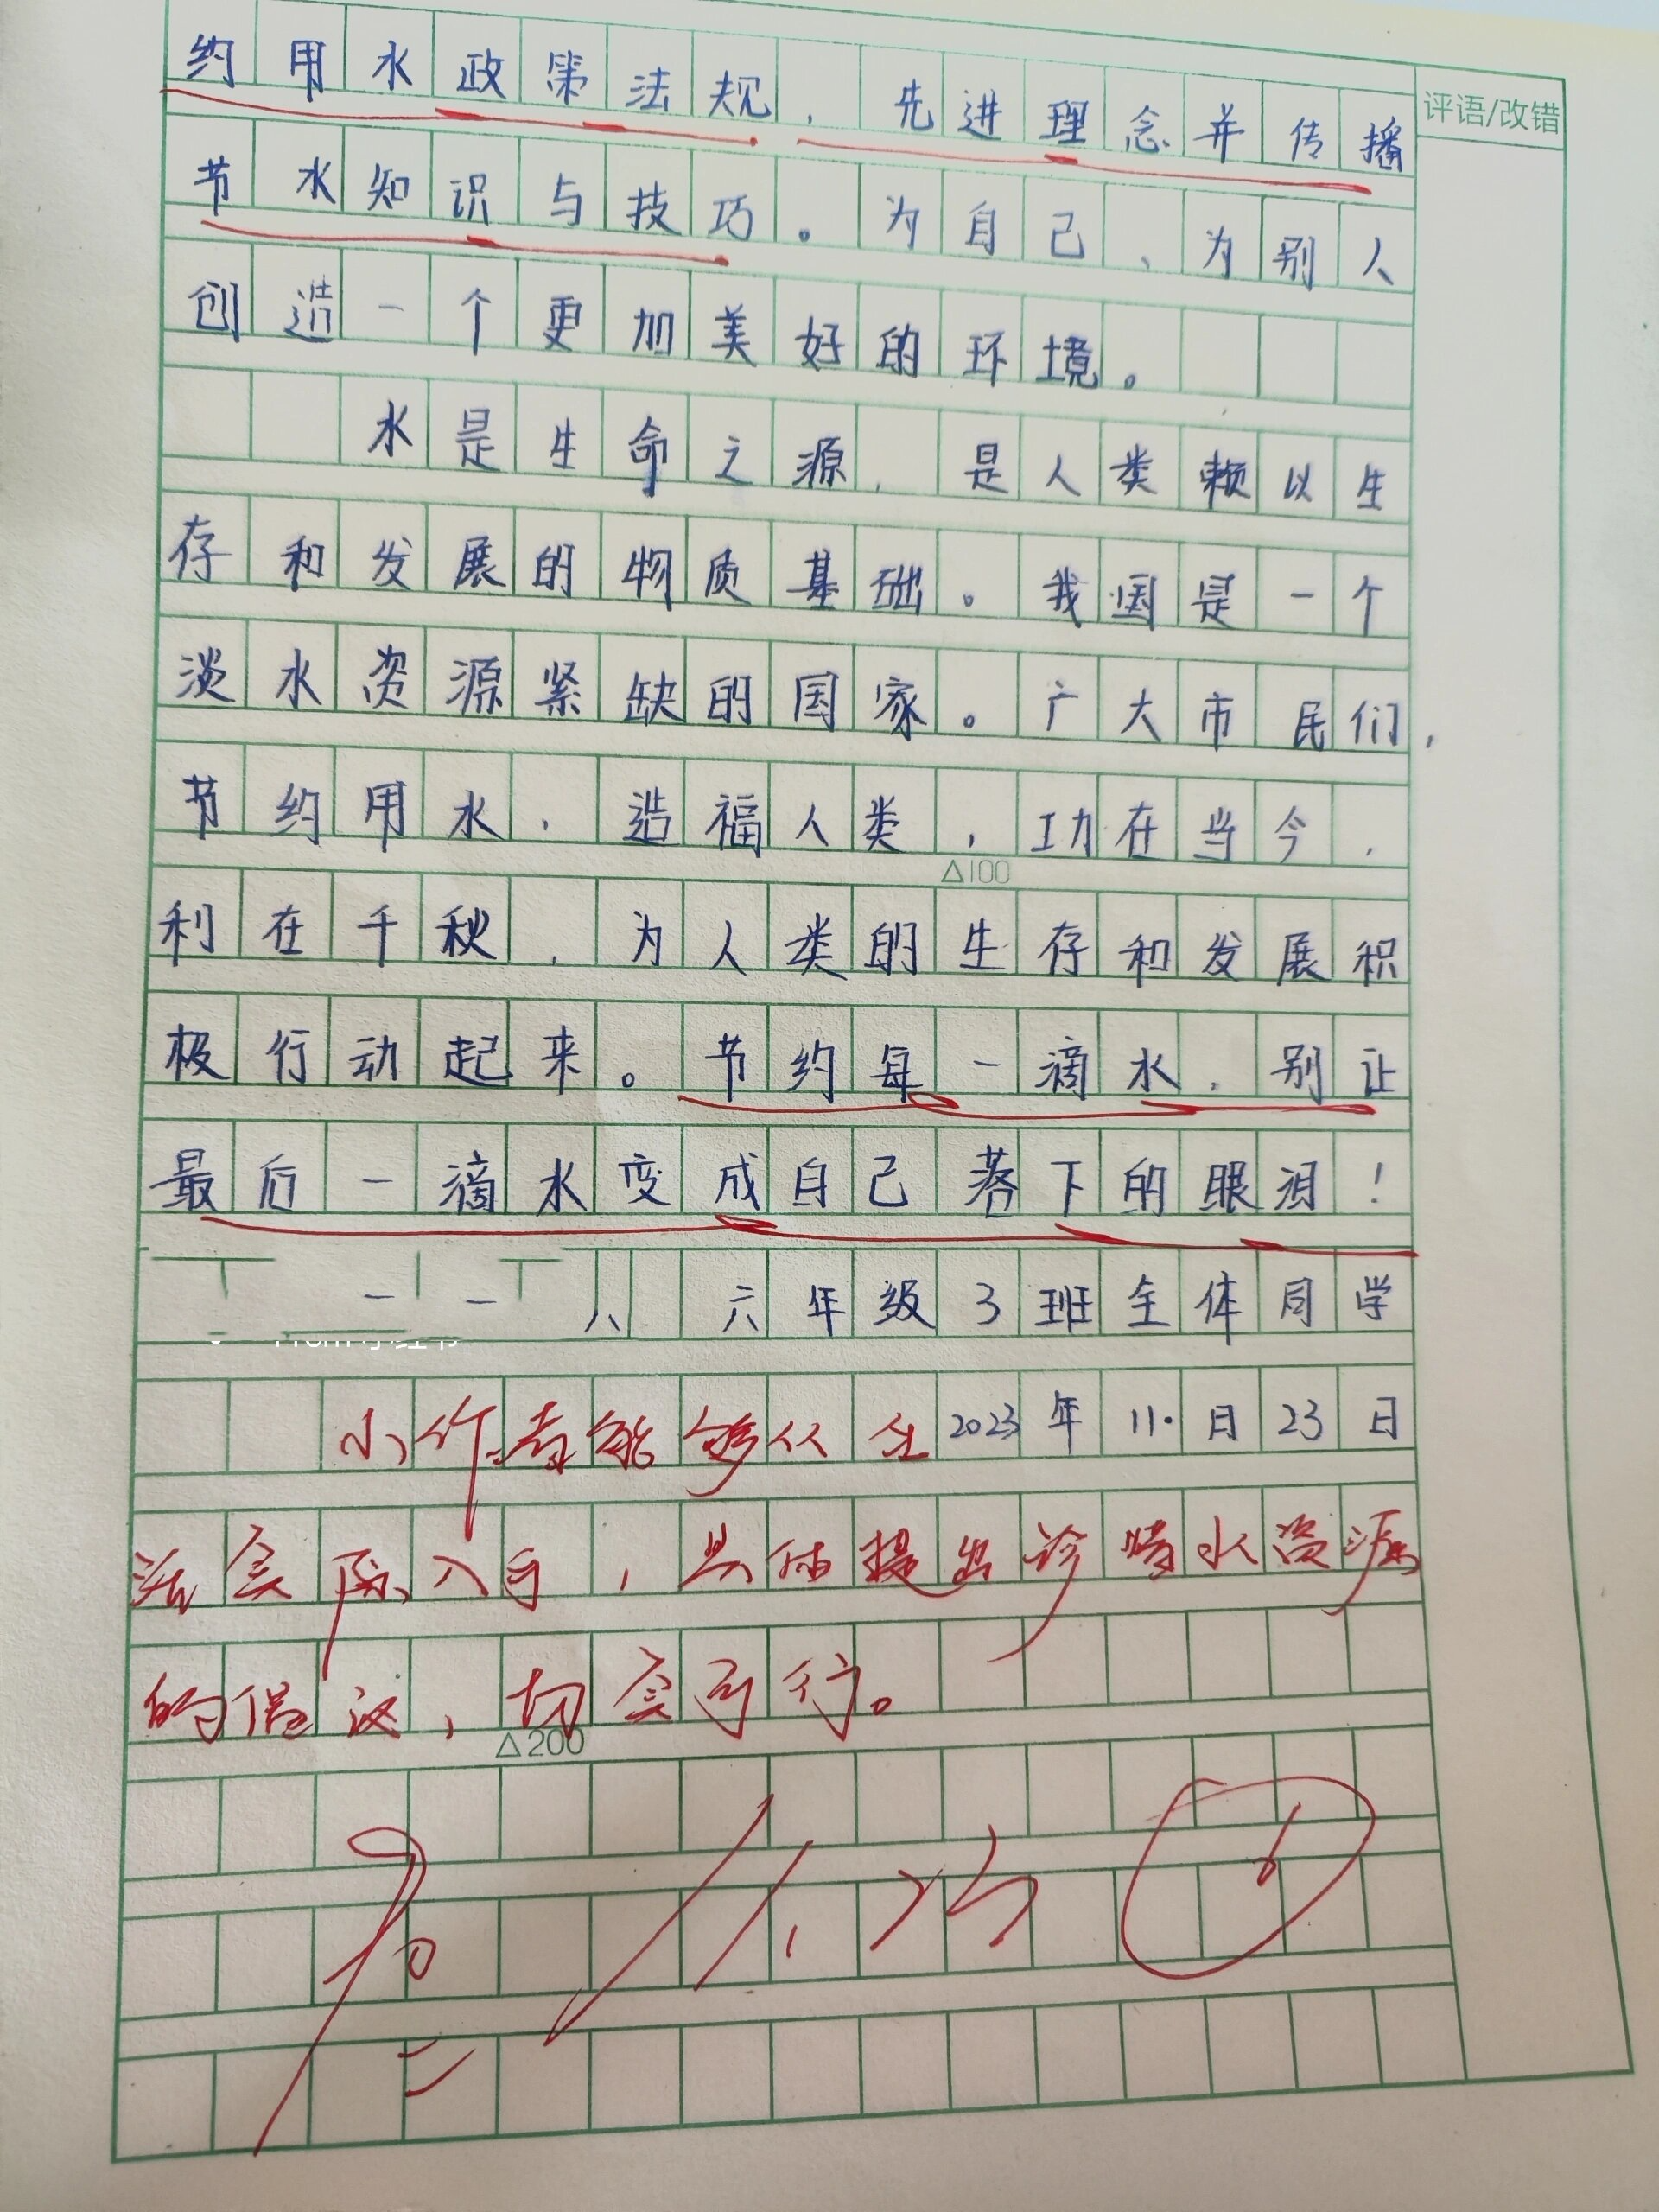 约用水政策法规，先进理念并传播
评语/改错
节水知识与技巧。为自己、为别人
创造一个更加美好的环境。
水是生命之源，是人类赖以生
存和发展的物质基础。我国是一个
淡水资源紧缺的国家。广大市民们，
节约用水，造福人类，功在当今，
△100
利在千秋，为人类的生存和发展积
极行动起来。节约每一滴水，别让
最后一滴水变成自己落下的眼泪！
六年级3班全体同学
2023年11.日23日
小作者能够从生
活实际入手，具体提出珍惜水资源
的倡议，切实可行。
△200